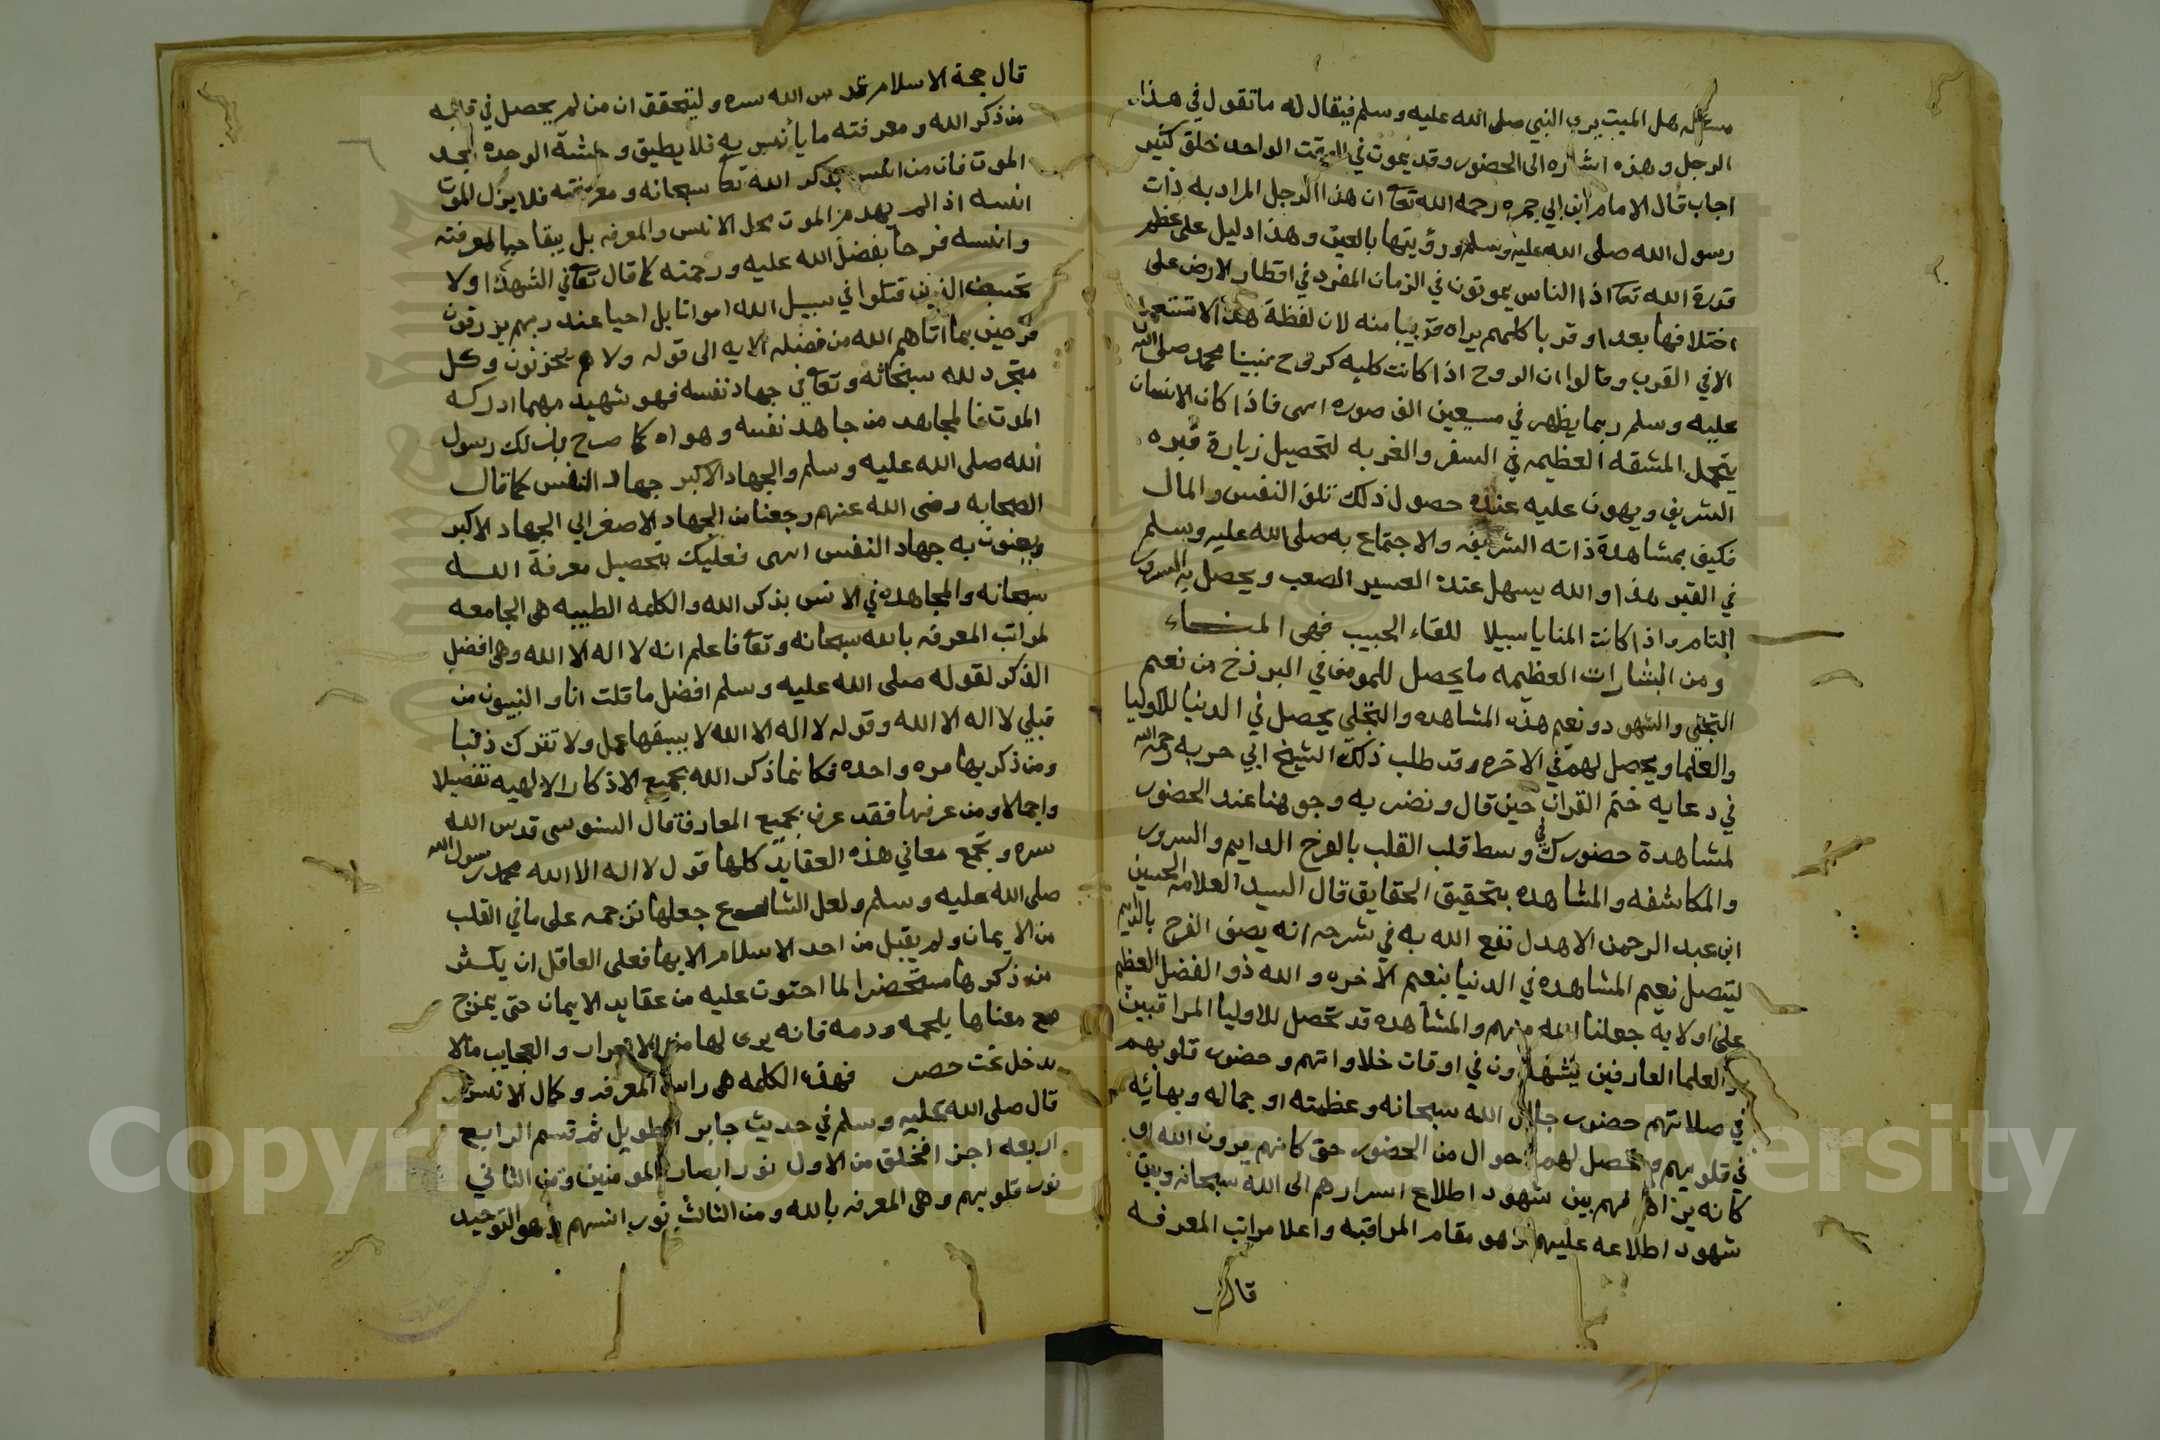 مسئله هل الميت يرى النبي صلى الله عليه وسلم فيقال له ما تقول في هذا
الرجل وهذه اشاره الى الحضور وقد يموت في الوقت الواحد خلق كثير
اجاب قال الامام ابن ابي جمره رحمه الله تعا ان هذا الرجل المراد به ذات
رسول الله صلى الله عليه وسلم ورؤيتها بالعين وهذا دليل على عظم
قدرة الله تعا اذ الناس يموتون في الزمان المفرد في اقطار الارض على
اختلافها بعدا وقربا كلهم يراه قريبا منه لان لفظة هذا لا تستعمل
الا في القرب وقالوا ان الروح اذا كانت كليه كروح نبينا محمد صلى الله
عليه وسلم ربما يظهر في سبعين الف صوره اهى فاذا كان الانسان
يتحمل المشقه العظيمه في السفر والغربه لتحصيل زيارة قبره
الشريف ويهون عليه عند حصول ذلك تلف النفس والمال
فكيف بمشاهدة ذاته الشريفه والاجتماع به صلى الله عليه وسلم
في القبر هذا والله يسهل عنده العسير الصعب ويحصل به السرور
التام واذا كانت المنايا سبيلا للقاء الحبيب فهى المنـاء
ومن البشارات العظيمه ما يحصل للمومن في البرزخ من نعيم
التجلي والشهود ونعيم هذه المشاهده والتجلي يحصل في الدنيا للاوليا
والعلما ويحصل لهم في الاخره وقد طلب ذلك الشيخ ابي حربه رحمه الله
في دعايه ختم القران حين قال ونضر به وجوهنا عند الحضور
لمشاهدة حضورك في وسط قلب القلب بالفرح الدايم والسرور
والمكاشفه والمشاهده بتحقيق الحقايق قال السيد العلامه الحسين
ابن عبد الرحمن الاهدل نفع الله به في شرحه انه يصف الفرح بالدايم
ليتصل نعيم المشاهده في الدنيا بنعيم الاخره والله ذو الفضل العظيم
على اوليايه جعلنا الله منهم والمشاهده قد تحصل للاوليا المراقبين
والعلما العارفين يشهدون في اوقات خلاواتهم وحضور قلوبهم
في صلاتهم حضور جلال الله سبحانه وعظمته او جماله وبهائه
في قلوبهم وتحصل لهم احوال من الحضور حتى كانهم يرون الله او
كانه يراهم فهم بين شهود اطلاع اسرارهم الى الله سبحانه وبين
شهود اطلاعه عليهم وهو مقام المراقبه واعلا مراتب المعرفه
قال
قال حجة الاسلام قدس الله سره وليتحقق ان من لم يحصل في قلبه
من ذكر الله ومعرفته ما يأنس به فلا يطيق وحشة الوحده بعد
الموت فان من انس بذكر الله تعا سبحانه ومعرفته فلا يزل الموت
انسه اذ لم يهدم الموت محل الانس والمعرفه بل يبقا حيا لمعرفته
وانسه فرحا بفضل الله عليه ورحمته كما قال تعا في الشهدا ولا
تحسبن الذين قتلوا في سبيل الله امواتا بل احيا عند ربهم يرزقون
فرحين بما اتاهم الله من فضله الايه الى قوله ولا هم يحزنون وكل
متجرد لله سبحانه وتعا في جهاد نفسه فهو شهيد مهما ادركه
الموت فالمجاهد من جاهد نفسه وهواه كما صرح بذلك رسول
الله صلى الله عليه وسلم والجهاد الاكبر جهاد النفس كما قال
الصحابه رضى الله عنهم رجعنا من الجهاد الاصغر الي الجهاد الاكبر
ويعنون به جهاد النفس اهى فعليك بتحصيل معرفة الله
سبحانه والمجاهده في الانس بذكر الله والكلمه الطيبه هى الجامعه
لمراتب المعرفه بالله سبحانه وتعا فاعلم انه لا اله الا الله وهى افضل
الذكر لقوله صلى الله عليه وسلم افضل ما قلت انا والنبيون من
قبلي لا اله الا الله وقوله لا اله الا الله لا يسبقها عمل ولا تترك ذنبا
ومن ذكر بها مره واحده فكانما ذكر الله بجميع الاذكار الالهيه تفصيلا
واجمالا ومن عرفها فقد عرف بجميع المعارف قال السنوسى قدس الله
سره وتجمع معاني هذه العقايد كلها قول لا اله الا الله محمد رسول الله
صلى الله عليه وسلم ولعل الشارع جعلها ترجمه على ما في القلب
من الايمان ولم يقبل من احد الاسلام الا بها فعلى العاقل ان يكثر
من ذكرها مستحضرا لما احتوت عليه من عقايد الايمان حتى يمزج
مع معناها بلحمه ودمه فانه يرى لها من الاسرار والعجايب مالا
يدخل تحت حصر فهذه الكلمه هى راس المعرفه وكمال الانس
قال صلى الله عليه وسلم في حديث جابر الطويل ثم قسم الرابع
اربعه اجزا فخلق من الاول نور ابصار المومنين ومن الثاني
نور قلوبهم وهى المعرفه بالله ومن الثالث نور انسهم وهو التوحيد
Copyright © King Saud University